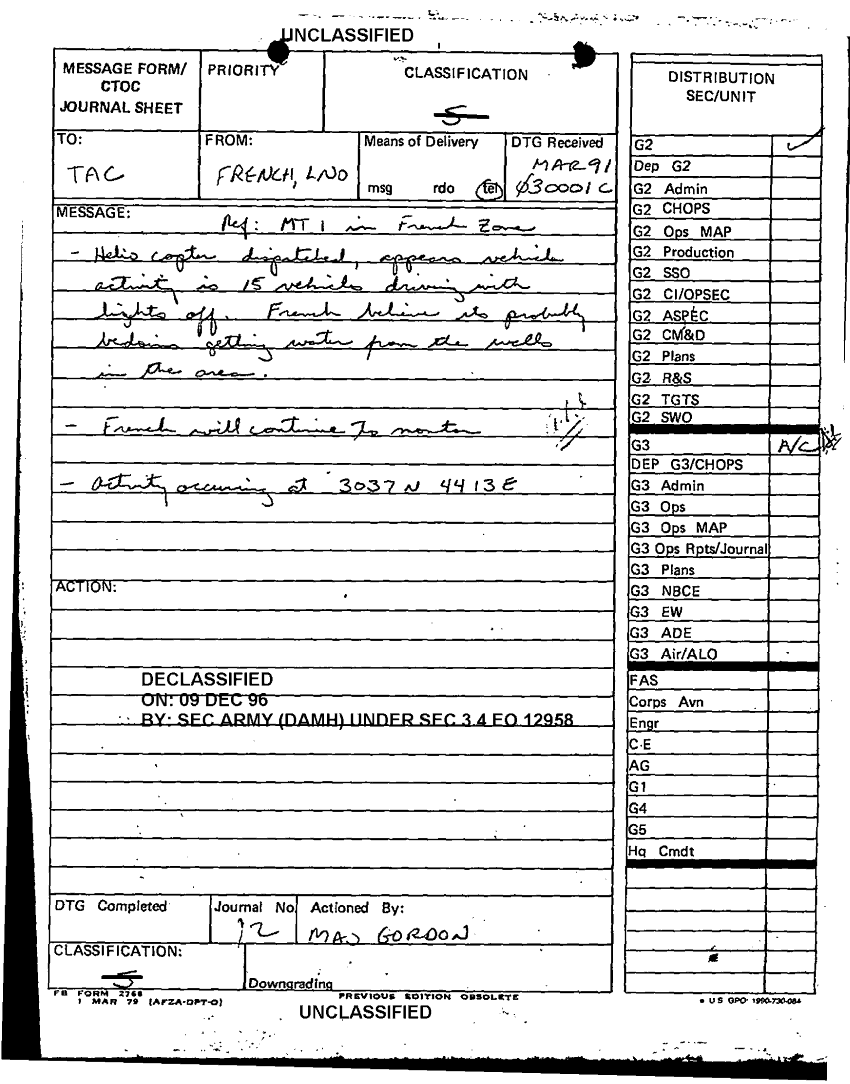 UNCLASSIFIED
MESSAGE FORM/
CTOC
JOURNAL SHEET
PRIORITY
CLASSIFICATION
S
TO:
TAC
FROM:
FRENCH, LNO
Means of Delivery
msg rdo tel
DTG Received
MAR 91
030001C
MESSAGE:
Ref: MT 1 in French Zone
- Helio copter dispatched, appears vehicle
activity is 15 vehicles driving with
lights off. French believe its probably
bedoins getting water from the wells
in the area.
- French will continue to monitor
- Activity occuring at 3037 N 4413 E
ACTION:
DECLASSIFIED
ON: 09 DEC 96
BY: SEC ARMY (DAMH) UNDER SEC 3.4 EO 12958
DTG Completed
Journal No
12
Actioned By:
MAJ GORDON
CLASSIFICATION:
S
Downgrading
FB FORM 2768
1 MAR 79 (AFZA-DPT-O)
PREVIOUS EDITION OBSOLETE
UNCLASSIFIED
DISTRIBUTION
SEC/UNIT
G2
Dep G2
G2 Admin
G2 CHOPS
G2 Ops MAP
G2 Production
G2 SSO
G2 CI/OPSEC
G2 ASPEC
G2 CM&D
G2 Plans
G2 R&S
G2 TGTS
G2 SWO
G3 A/C
DEP G3/CHOPS
G3 Admin
G3 Ops
G3 Ops MAP
G3 Ops Rpts/Journal
G3 Plans
G3 NBCE
G3 EW
G3 ADE
G3 Air/ALO
FAS
Corps Avn
Engr
C-E
AG
G1
G4
G5
Hq Cmdt
US GPO: 1990-730-084